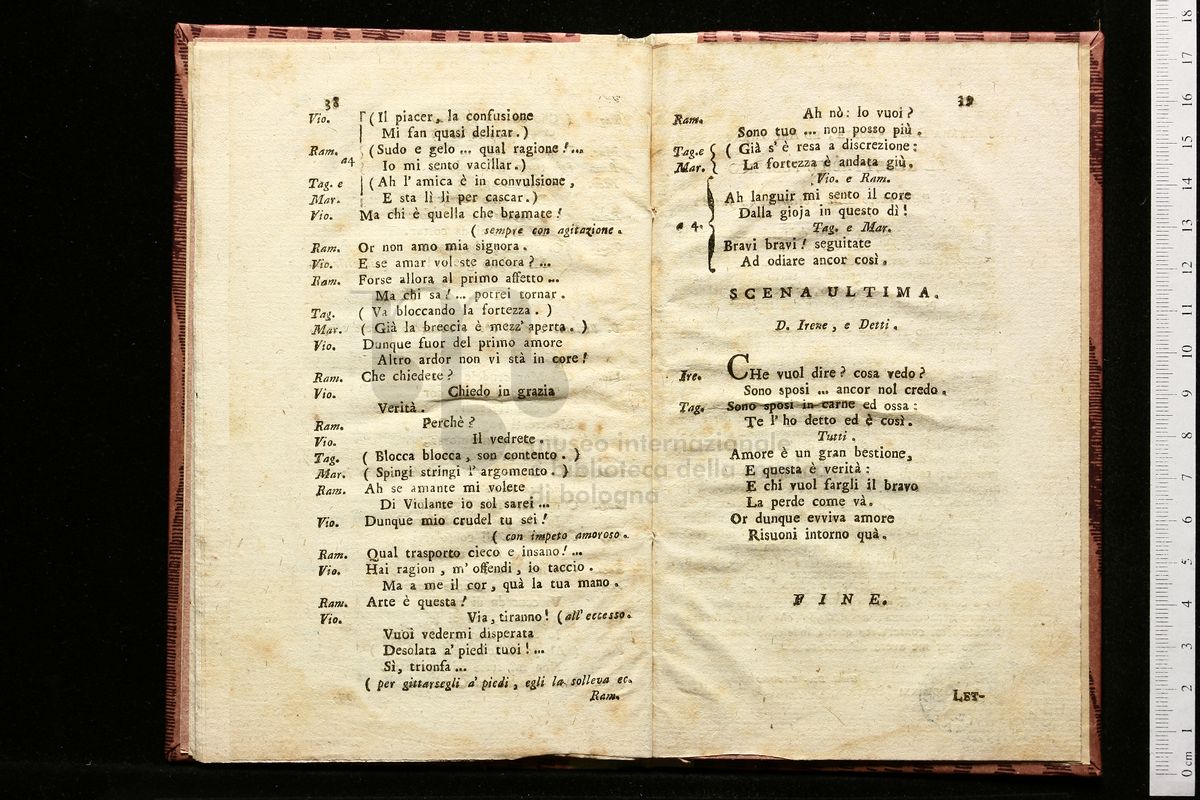 38
Vio. (Il piacer, la confusione
Mi fan quasi delirar.)
Ram. (Sudo e gelo ... qual ragione! ...
a4 Io mi sento vacillar.)
Tag. e (Ah l' amica è in convulsione,
Mar. E sta lì lì per cascar.)
Vio. Ma chi è quella che bramate!
( sempre con agitazione.
Ram. Or non amo mia signora.
Vio. E se amar voleste ancora? ...
Ram. Forse allora al primo affetto ...
Ma chi sa! ... potrei tornar.
Tag. ( Va bloccando la fortezza. )
Mar. ( Già la breccia è mezz' aperta. )
Vio. Dunque fuor del primo amore
Altro ardor non vi stà in core!
Ram. Che chiedete?
Vio. Chiedo in grazia
Verità.
Ram. Perchè?
Vio. Il vedrete.
Tag. ( Blocca blocca, son contento. )
Mar. ( Spingi stringi l' argomento. )
Ram. Ah se amante mi volete
Di Violante io sol sarei ...
Vio. Dunque mio crudel tu sei!
( con impeto amoroso.
Ram. Qual trasporto cieco e insano! ...
Vio. Hai ragion, m' offendi, io taccio.
Ma a me il cor, quà la tua mano.
Ram. Arte è questa!
Vio. Via, tiranno! (all' eccesso.
Vuoi vedermi disperata
Desolata a' piedi tuoi! ...
Sì, trionfa ...
( per gittarsegli a' piedi, egli la solleva ec.
Ram.
39
Ram. Ah nò: lo vuoi?
Sono tuo ... non posso più.
Tag. e ( Già s' è resa a discrezione:
Mar. La fortezza è andata giù.
Vio. e Ram.
Ah languir mi sento il core
Dalla gioja in questo dì!
a 4. Tag. e Mar.
Bravi bravi! seguitate
Ad odiare ancor così.
SCENA ULTIMA.
D. Irene, e Detti.
Ire. CHe vuol dire? cosa vedo?
Sono sposi ... ancor nol credo.
Tag. Sono sposi in carne ed ossa:
Te l' ho detto ed è così.
Tutti.
Amore è un gran bestione,
E questa è verità:
E chi vuol fargli il bravo
La perde come và.
Or dunque evviva amore
Risuoni intorno quà.
FINE.
LET-
museo internazionale
biblioteca della
di bologna
0 cm 1 2 3 4 5 6 7 8 9 10 11 12 13 14 15 16 17 18